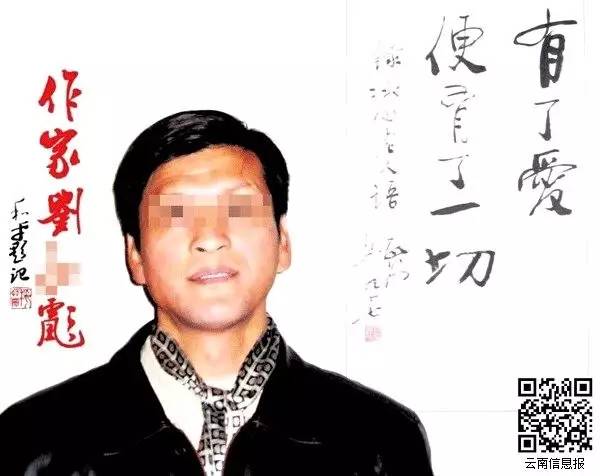 作家劉彪
題記
有了愛
便有了一切
錄冰心老人語
云南信息报